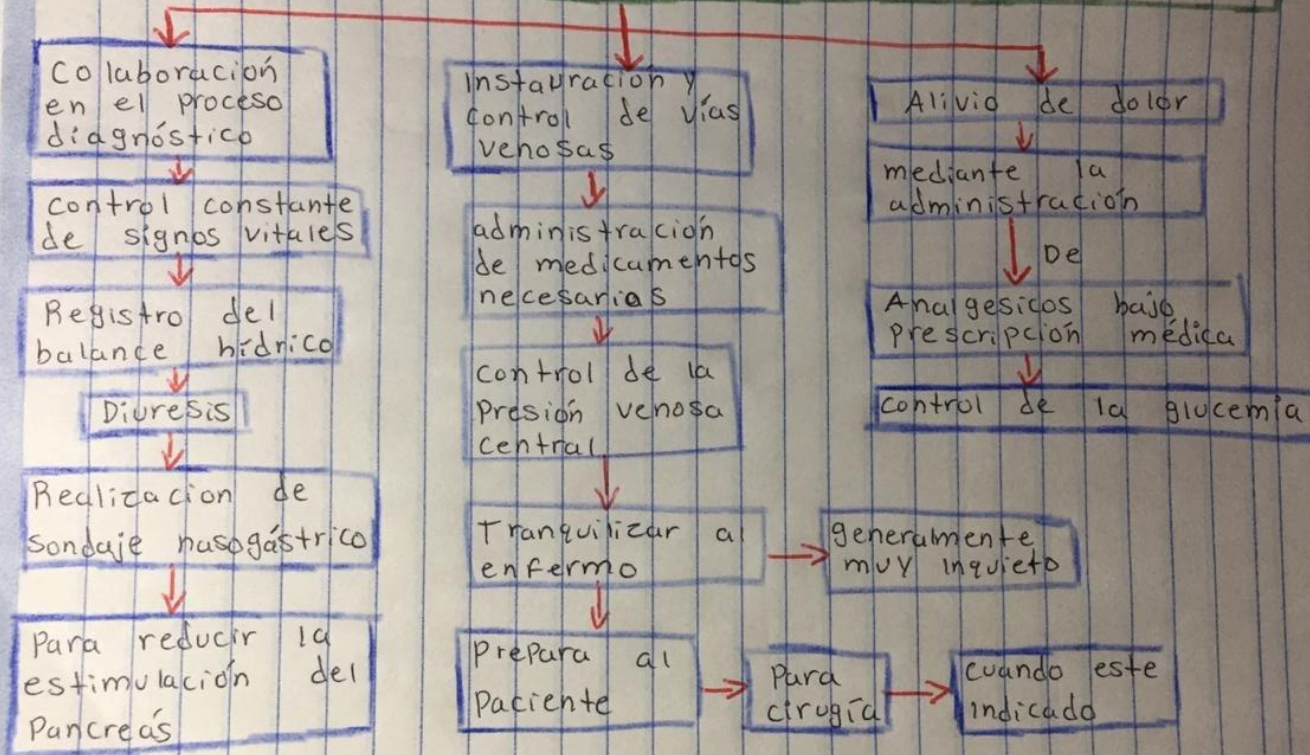 Colaboración
en el proceso
diagnóstico
control constante
de signos vitales
Registro del
balance hídrico
Diuresis
Realizacion de
sondaje nasogástrico
Para reducir la
estimulación del
Pancreás
Instauración y
control de vías
venosas
administración
de medicamentos
necesarios
control de la
Presión venosa
central
Tranquilizar al
enfermo
generalmente
muy inquieto
Prepara al
Paciente
Para
cirugía
cuando este
indicado
Alivio de dolor
mediante la
administración
De
Analgesicos bajo
prescripción médica
control de la glucemia